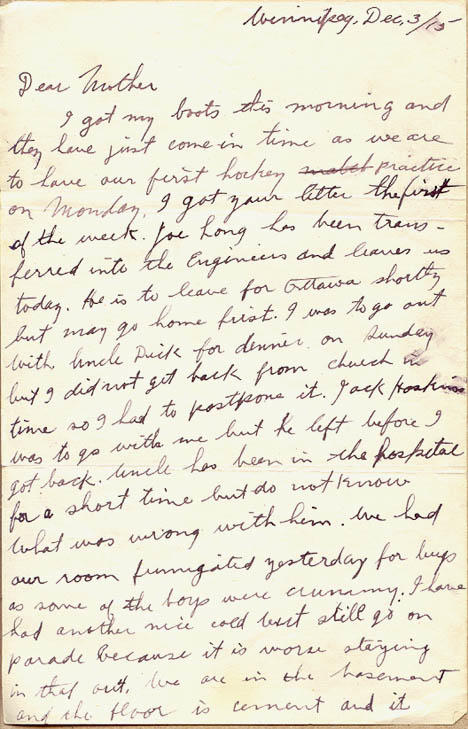 Winnipeg, Dec, 3/15
Dear Mother
I got my boots this morning and
they have just come in time as we are
to have our first hockey practice
on Monday. I got your letter the first
of the week. Joe Long has been trans-
ferred into the Engineers and leaves us
today. He is to leave for Ottawa shortly
but may go home first. I was to go out
with Uncle Dick for dinner on Sunday
but I did not get back from church in
time so I had to postpone it. Jack Hoskins
was to go with me but he left before I
got back. Uncle has been in the hospital
for a short time but do not know
what was wrong with him. We had
our room fumigated yesterday for bugs
as some of the boys were crummy. I have
had another nice cold but still go on
parade because it is worse staying
in that out. We are in the basement
and the floor is cement and it